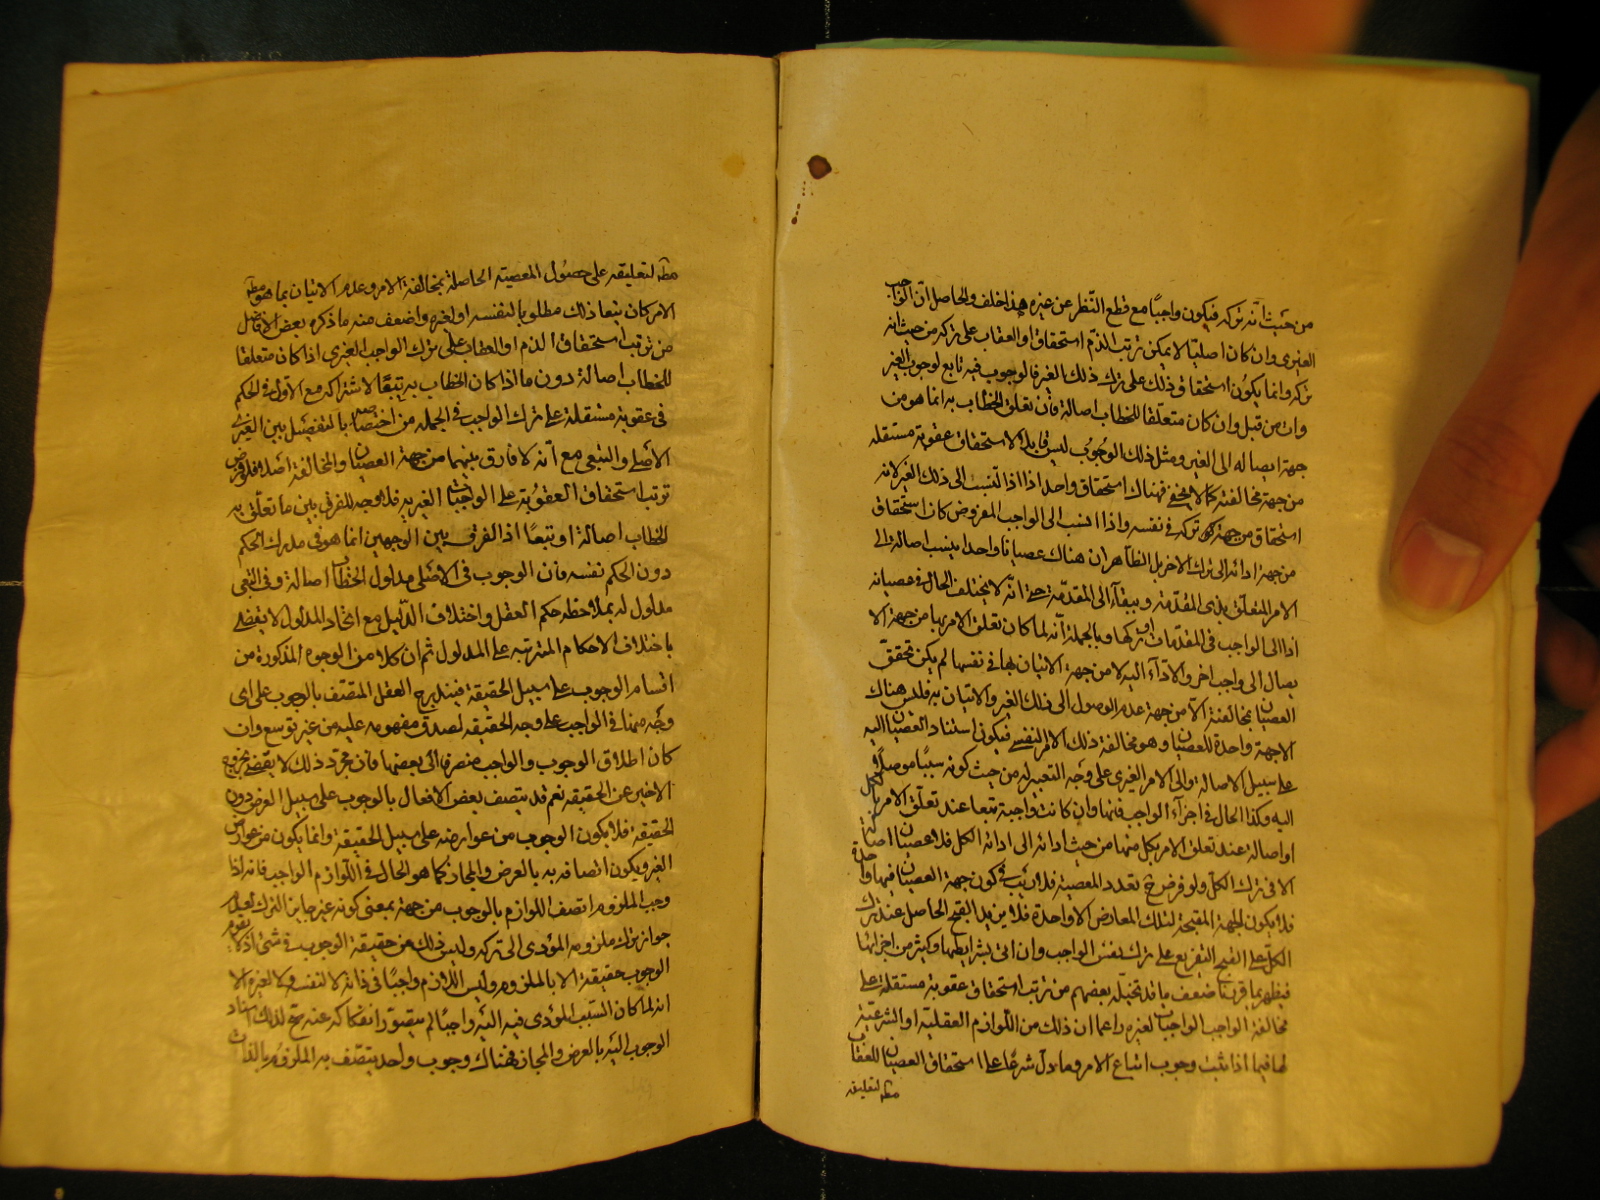 من حيث انه تركه فيكون واجبًا مع قطع النظر عن غيره هذا خلف والحاصل انّ الواجب
الغيرى وان كان اصليّا لا يمكن ترتب الذم استحقاق او العقاب على تركه من حيث انه
تركه وانما يكون استحقاق ذلك على ترك ذلك الغير فالوجوب فيه تابع لوجوب الغير
وات من قبل وان كان متعلّقا للخطاب اصالة فان تعلق الخطاب به انما هو من
جهة ايصاله الى الغير ومثل ذلك الوجُوب ليس قابلا لاستحقاق عقوبة مستقله
من جهة مخالفته كما لا يخفى فهناك استحقاق واحد اذا اذا لنسب الى ذلك الغير لانه
استحقاق من جهة تركه فى نفسه واذا انسب الى الواجب المفروض كان استحقاق
من جهة ادائه الى ترك الاخر بل الظاهر ان هناك عصيانا واحدا ينسب اصالة الى
الامر المتعلق بذى المقدّمة وتبعًا الى المقدّمة على انّه لا يختلف الحال فى عصيانه
اذا الى الواجب فى المقدّمات او تركها وبالجملة انّه لما كان تعلق الامر بها من جهة الا
يصال الى واجب اخر والاداء اليه لا من جهة الاتيان بها فى نفسها لم يكن تحقق
العصيان بمخالفته الا من جهة عدم الوصول الى ذلك الغير والاتيان به فليس هناك
الاجهة واحدة للعصيان وهو مخالفة ذلك الامر النفسى فيكون استناد العصيان اليه
على سبيل الاصالة والى الامر الغيرى على وجه التبعية له من حيث كونه سببًا موصلًا
اليه وكذا الحال فى اجزاء الواجب فانها وان كانت واجبة تبعا عند تعلق الامر بالكل
او اصالة عند تعلق الامر بكل منها من حيث ادائه الى ادائه الكل فلا عصيان اصالة
الا فى ترك الكل ولو فرض تعدد المعصية فلا ريب فى كون جهة العصيان فيها واحدة
فلا يكون الجهة المقبحة لتلك المعارض الا واحدة فلا يزيد القبح الحاصل عند ترك
الكل على القبح المتفرع على ترك نفس الواجب وان اتى بشرايطها وكثير من اجزائها
فيظهر بما قررنا ضعف ما قد تخيله بعضهم من ترتب استحقاق عقوبة مستقلة على
مخالفة الواجب الواجبات لغيره زاعما ان ذلك من اللوازم العقلية او الشرعية
لها فيما اذا ثبت وجوب اتباع الامر وما دل شرعًا على استحقاق العصيان للعقاب
مطه لتعليقه
مطه لتعليقه على حصول المعصية الحاصلة بمخالفة الامر وعدم الاتيان بما هو مطه
الامر كان تبعا ذلك مطلوبا لنفسه او لغيره واضعف منه ما ذكره بعض الافاضل
من ترتب استحقاق الذم او العقاب على ترك الواجب الغيرى اذا كان متعلقا
للخطاب اصالة دون ما اذا كان الخطاب به تبعًا لاشتراكه مع الاول فى الحكم
فى عقوبة مستقلة على ترك الواجب فى الجمله من اختصاصه بالتفصيل بين الغيرى
الاصلى والتبعى مع انّه لا فارق بينهما من جهة العصيان والمخالفة اصلا فلو فرض
ترتب استحقاق العقوبة على الواجب الغيرية فلا وجه للفرق بين ما تعلّق به
الخطاب اصالة او تبعًا اذ الفرق بين الوجهين انما هو فى مدرك الحكم
دون الحكم نفسه فان الوجوب فى الاصلى مدلول الخطاب اصالة وفى التبعى
مدلول له بملاحظه حكم العقل واختلاف الدّليل مع اتحاد المدلول لا يقضى
باختلاف الاحكام المترتبه على المدلول ثم ان كلا من الوجوه المذكورة من
اقسام الوجوب على سبيل الحقيقة فيندرج العقل المقتف بالوجوب على اى
وجه منها فى الواجب على وجه الحقيقه لصدق مفهومه عليه من غير توسع وان
كان اطلاق الوجوب والواجب منصرفا الى بعضها فان مجرد ذلك لا يقضى بخروج
الاخير عن الحقيقه نعم قد يتصف بعض الافعال بالوجوب على سبيل العرض دون
الحقيقة فلا يكون الوجوب من عوارضه على سبيل الحقيقة وانما يكون من عوارض
الغير ويكون اتصافه به بالعرض والمجاز كما هو الحال فى اللوازم الواجب فانه اذا
وجب الملزوم اتصف اللوازم بالوجوب من جهته بمعنى كونه غير جايز الترك لعدم
جواز ترك ملزومه المؤدى الى تركه وليس ذلك من حقيقة الوجوب فى شئ اذ لا يقوم
الوجوب حقيقة الا بالملزوم وليس اللازم واجبًا فى ذاته لا لنفسه ولا لغيره الا
انه لما كان السّبب المؤدى فيه اليه واجبًا لم يتصوّر انفكاكه عنه صح لذلك اسناد
الوجوب اليه بالعرض والمجاز فهناك وجوب واحد يتصف به الملزوم بالذات